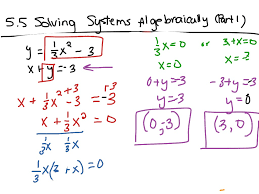 5.5 Solving Systems Algebraically (Part 1)
y = 1/3 x² - 3
x + y = -3
x + 1/3 x² - 3 = -3
+3 +3
x + 1/3 x² = 0
1/3 x 1/3 x
1/3 x (3 + x) = 0
1/3 x = 0 or 3 + x = 0
x = 0 x = -3
0 + y = -3 -3 + y = -3
y = -3 y = 0
(0, -3) (3, 0)